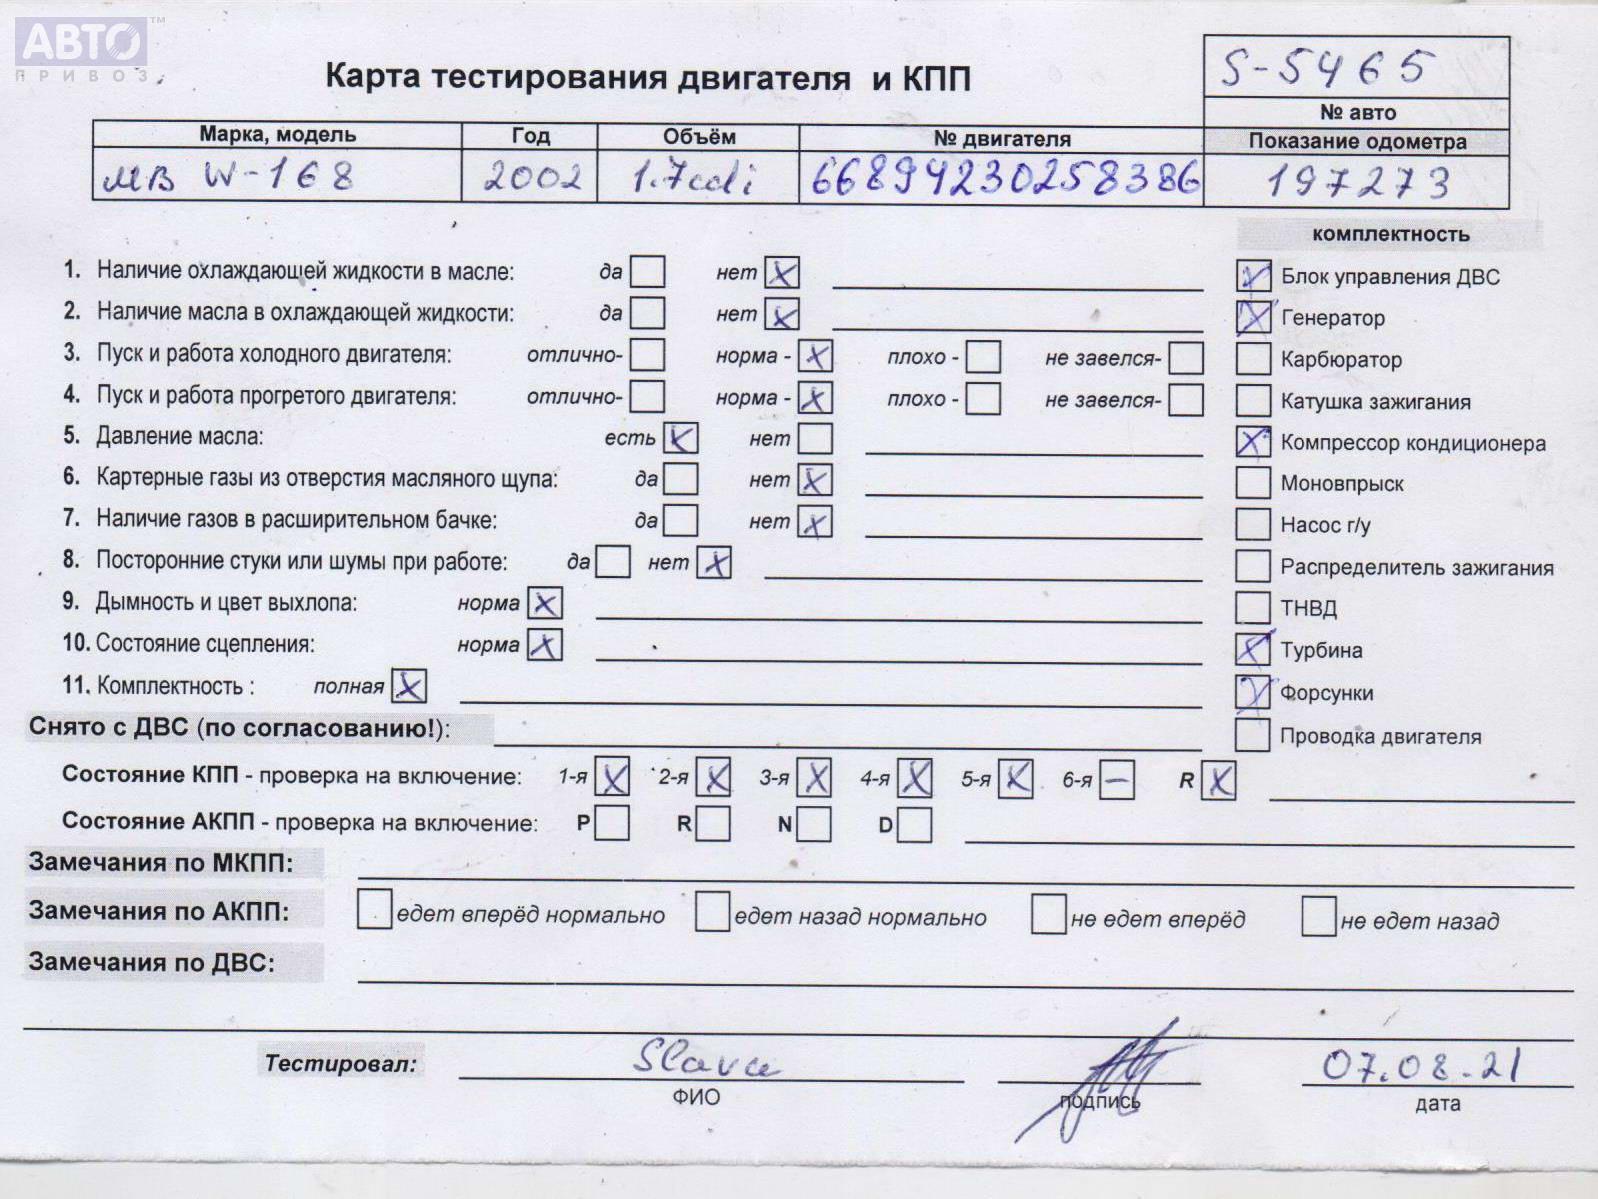 АВТО™
ПРИВОЗ
Карта тестирования двигателя и КПП
S-5465
№ авто
Марка, модель Год Объём № двигателя Показание одометра
МВ W-168 2002 1.7cdi 66894230258386 197273
комплектность
1. Наличие охлаждающей жидкости в масле: да нет X
Блок управления ДВС X
2. Наличие масла в охлаждающей жидкости: да нет X
Генератор X
3. Пуск и работа холодного двигателя: отлично- норма - X плохо - не завелся-
Карбюратор
4. Пуск и работа прогретого двигателя: отлично- норма - X плохо - не завелся-
Катушка зажигания
5. Давление масла: есть X нет
Компрессор кондиционера X
6. Картерные газы из отверстия масляного щупа: да нет X
Моновпрыск
7. Наличие газов в расширительном бачке: да нет X
Насос г/у
8. Посторонние стуки или шумы при работе: да нет X
Распределитель зажигания
9. Дымность и цвет выхлопа: норма X
ТНВД
10. Состояние сцепления: норма X
Турбина X
11. Комплектность : полная X
Форсунки X
Снято с ДВС (по согласованию!):
Проводка двигателя
Состояние КПП - проверка на включение: 1-я X 2-я X 3-я X 4-я X 5-я X 6-я — R X
Состояние АКПП - проверка на включение: P R N D
Замечания по МКПП:
Замечания по АКПП: едет вперёд нормально едет назад нормально не едет вперёд не едет назад
Замечания по ДВС:
Тестировал: Slava 07.08.21
ФИО подпись дата